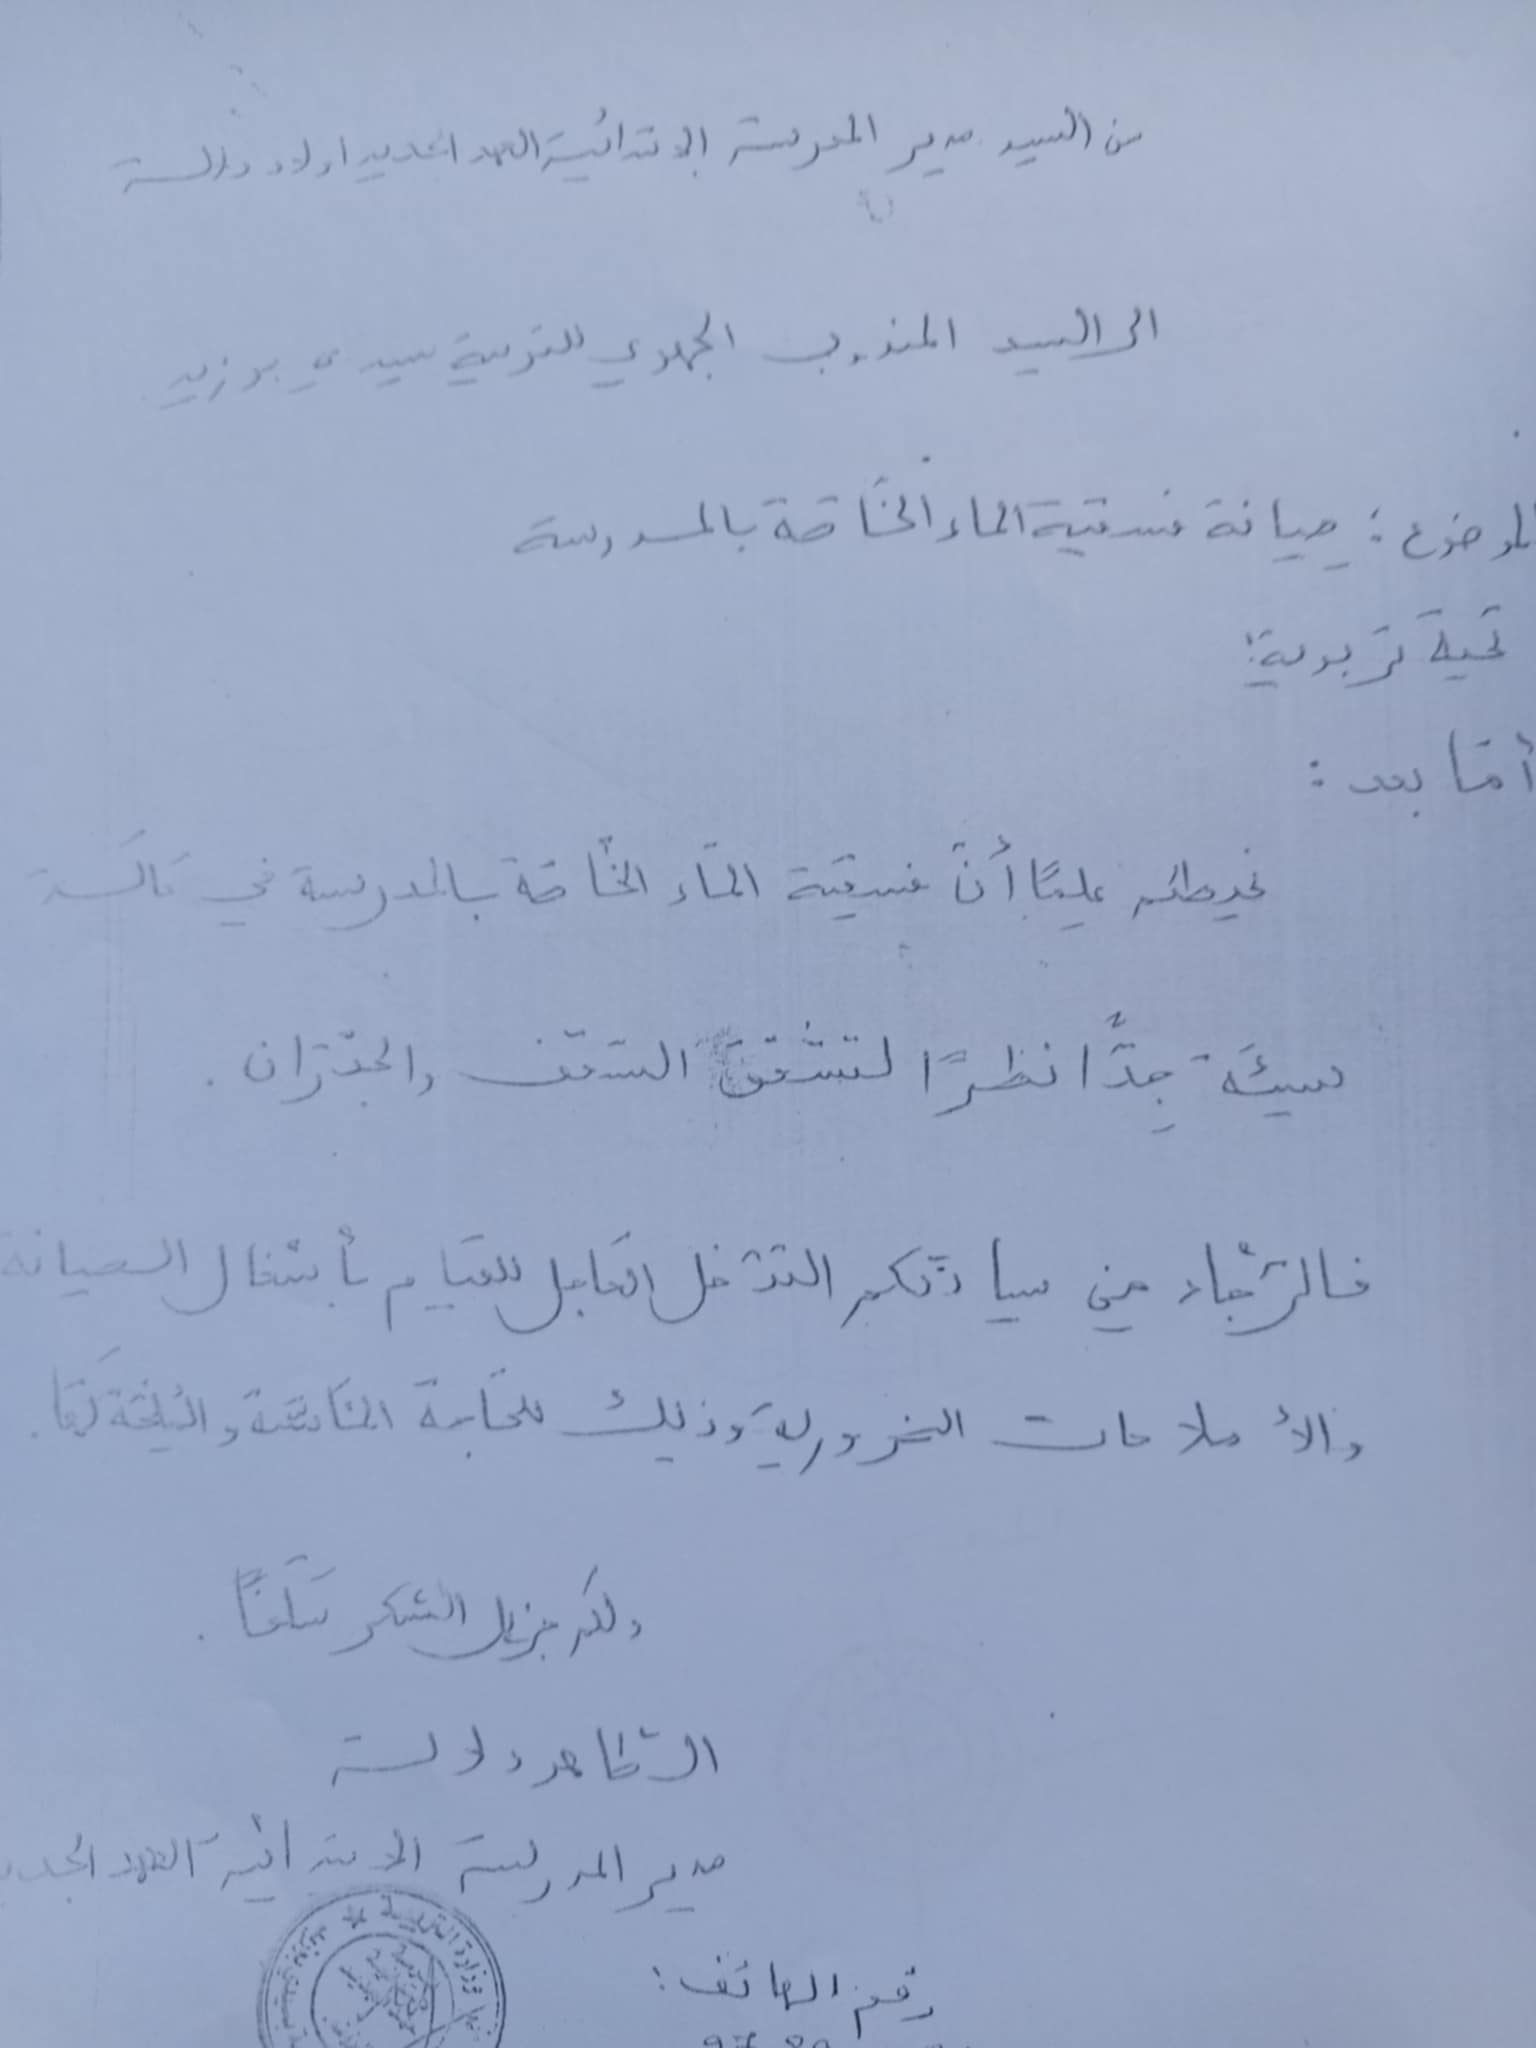 من السيد مدير المدرسة الابتدائية العهد الجديد اولاد دلالسة
الى السيد المندوب الجهوي للتربية سيدي بوزيد
الموضوع : صيانة فسقية الماء الخاصة بالمدرسة
تحية تربوية:
أمّا بعد :
نحيطكم علمًا أنّ فسقية الماء الخاصة بالمدرسة في حالة
سيئة جدًّا نظرًا لتشقق السّقف والجدران .
فالرّجاء من سيادتكم التدخل العاجل للقيام بأشغال الصيانة
والأصلاحات الضرورية وذلك للحاجة الماسّة والملحّة لها .
ولكم جزيل الشكر سلفًا .
الطاهر دلالسة
مدير المدرسة الابتدائية العهد الجديد
وزارة التربية
رقم الهاتف :